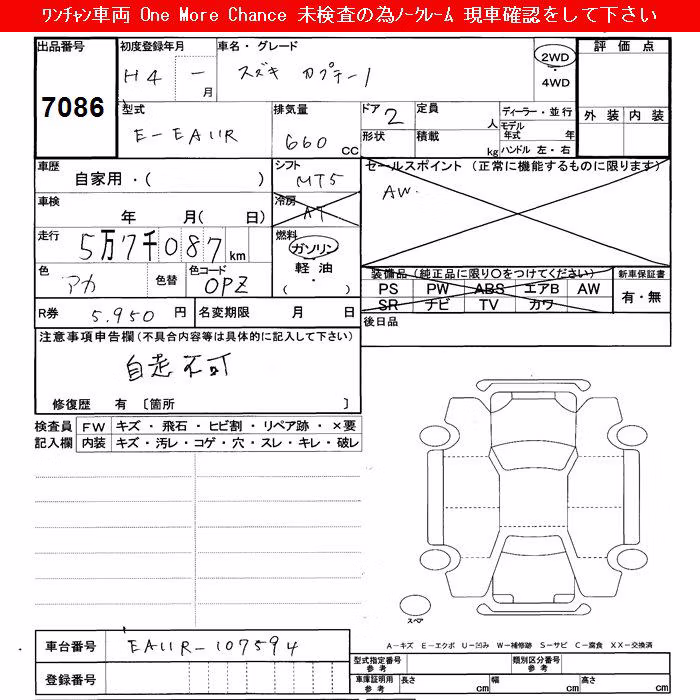 ﾜﾝﾁｬﾝ車両 One More Chance 未検査の為ﾉｰｸﾚｰﾑ 現車確認をして下さい
出品番号 7086
初度登録年月 H4 - 月
車名・グレード スズキ カプチーノ
2WD・4WD
評価点
外装 内装
型式 E-EA11R
排気量 660 CC
ドア 2
形状
定員 人
積載 kg
ディーラー・並行
モデル年式 年式
ハンドル 左・右
車歴 自家用・( )
シフト MT5
セールスポイント(正常に機能するものに限ります)
AW.
車検 年 月( 日)
冷房 AT
走行 5万7千087km
燃料 ガソリン 軽油 ( ・ )
色 アカ 色替 色コード OPZ
装備品(純正品に限り○をつけてください)
PS PW ABS エアB AW
SR ナビ TV カワ
新車保証書
有・無
R券 5.950 円 名変期限 月 日
後日品
注意事項申告欄(不具合内容等は具体的に記入して下さい)
自走不可
修復歴 有 〔箇所 〕
検査員記入欄
FW キズ・飛石・ヒビ割・リペア跡・×要
内装 キズ・汚レ・コゲ・穴・スレ・キレ・破レ
スペア
A－キズ E－エクボ U－凹み W－補修跡 S－サビ C－腐食 XX－交換済
車台番号 EA11R-107594
登録番号
型式指定番号参考 類別区分番号参考
車庫証明用参考 長さ cm 幅 cm 高さ cm